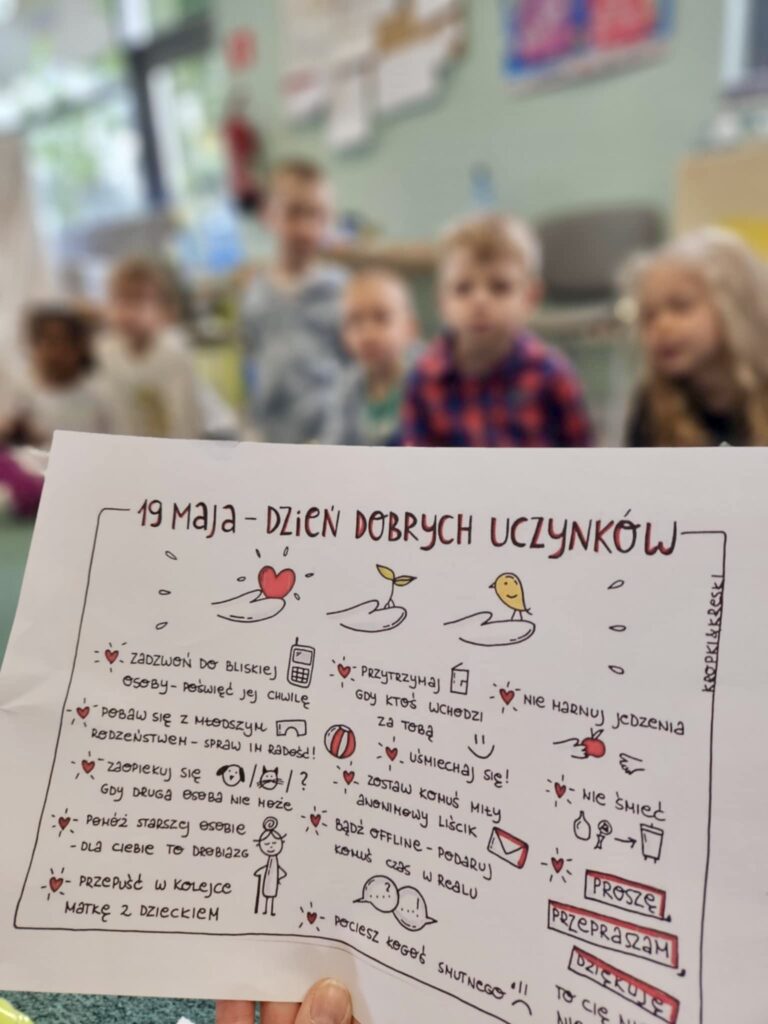 19 MAJA - DZIEŃ DOBRYCH UCZYNKÓW
KROPKI&KRESKI
ZADZWOŃ DO BLISKIEJ
OSOBY - POŚWIĘĆ JEJ CHWILĘ
POBAW SIĘ Z MŁODSZYM
RODZEŃSTWEM - SPRAW IM RADOŚĆ!
ZAOPIEKUJ SIĘ / / ?
GDY DRUGA OSOBA NIE MOŻE
POMÓŻ STARSZEJ OSOBIE
- DLA CIEBIE TO DROBIAZG
PRZEPUŚĆ W KOLEJCE
MATKĘ Z DZIECKIEM
PRZYTRZYMAJ
GDY KTOŚ WCHODZI
ZA TOBĄ
UŚMIECHAJ SIĘ!
ZOSTAW KOMUŚ MIŁY
ANONIMOWY LIŚCIK
BĄDŹ OFFLINE - PODARUJ
KOMUŚ CZAS W REALU
? !
POCIESZ KOGOŚ SMUTNEGO
NIE MARNUJ JEDZENIA
NIE ŚMIEĆ
PROSZĘ,
PRZEPRASZAM,
DZIĘKUJĘ
TO CIĘ